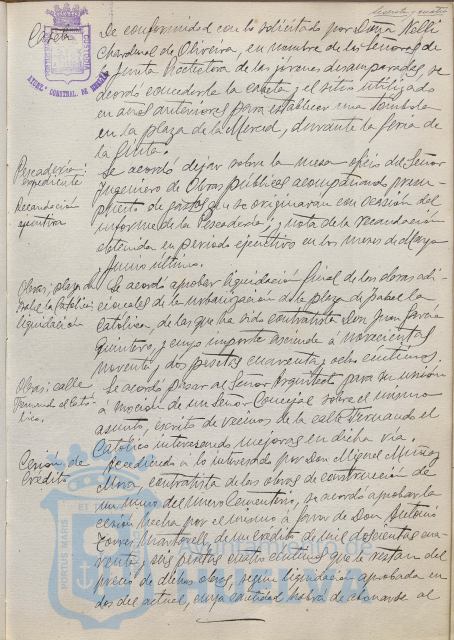 De conformidad con lo solicitado por Doña Nelli
Chardinal de Oliveira, en nombre de las Señoras de
la Junta Protectora de las jóvenes desamparadas, se
acordó concederle la caseta y el sitio utilizado
en años anteriores para establecer una tómbola
en la plaza de la Merced, durante la feria de
la
Pescadería:
expediente
Recaudación
ejecutiva
Se acordó dejar sobre la mesa oficio del Señor
Ingeniero de Obras públicas acompañando presu-
puesto de gastos que se originarán con ocasión del
informe de la Pescadería; y nota de la recaudación
obtenida en período ejecutivo en los meses de Mayo
Junio último.
Obras: plaza de
Isabel la Católica:
liquidación
Se acordó aprobar liquidación final de las obras adi-
cionales de la urbanización de la plaza de Isabel la
Católica, de las que ha sido contratista Don Juan García
Quintero, y cuyo importe asciende a novecientas
noventa y dos pesetas cuarenta y ocho céntimos.
Obras: calle
Fernando el Cató-
lico.
Se acordó pasar al Señor Arquitecto para su unión
a moción de un Señor Concejal sobre el mismo
asunto, escrito de vecinos de la calle Fernando el
Católico interesando mejoras en dicha vía.
Cesión de
Crédito
Accediendo a lo interesado por Don Miguel Muñoz
Mora, contratista de las obras de construcción de
un muro del nuevo Cementerio, se acordó aprobar la
cesión hecha por el mismo a favor de Don Antonio
Torres Martorell, de un crédito de mil doscientas cua-
renta y seis pesetas cuatro céntimos que le restan del
precio de dichas obras, según liquidación aprobada en
dos del actual, cuya cantidad habrá de abonarse al